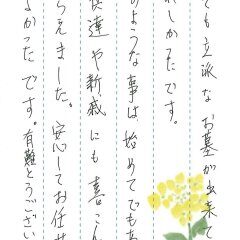 ても立派なお墓が出来て
れしかたです。
のような事は始めてでもあ
友達や新戚にも喜こん
らえました。安心してお任せ
よかったです。有難とうござい